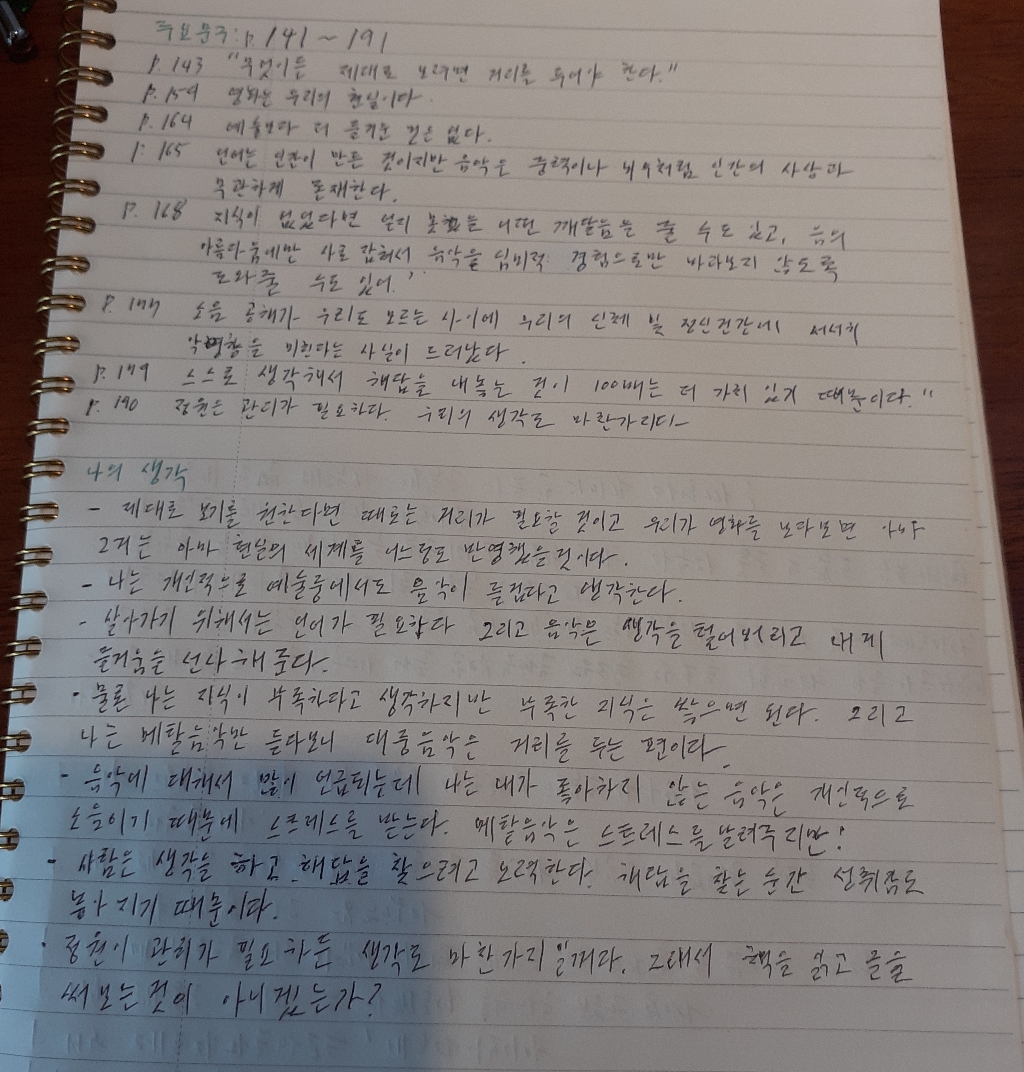 주요문구: p. 141 ~ 191
p. 143 "무엇이든 제대로 보려면 거리를 두어야 한다."
p. 159 영화는 우리의 현실이다.
p. 164 예술보다 더 즐거운 것은 없다.
p. 165 언어는 인간이 만든 것이지만 음악은 중력이나 번개처럼 인간의 사상과
무관하게 존재한다.
p. 168 지식이 없었다면 얻지 못했을 어떤 깨달음을 줄 수도 있고, 음의
아름다움에만 사로잡혀서 음악을 심미적 경험으로만 바라보지 않도록
도와줄 수도 있어.'
p. 177 소음 공해가 우리도 모르는 사이에 우리의 신체 및 정신건강에 서서히
악영향을 미친다는 사실이 드러났다.
p. 179 스스로 생각해서 해답을 내놓는 것이 100배는 더 가치 있기 때문이다."
p. 190 정원은 관리가 필요하다. 우리의 생각도 마찬가지다
나의 생각
- 제대로 보기를 원한다면 때로는 거리가 필요할 것이고 우리가 영화를 보다보면 아마
그거는 아마 현실의 세계를 어느정도 반영했을것이다.
- 나는 개인적으로 예술중에서도 음악이 즐겁다고 생각한다.
- 살아가기 위해서는 언어가 필요합다 그리고 음악은 생각을 털어버리고 내게
즐거움을 선사해 준다.
- 물론 나는 지식이 부족하다고 생각하지만 부족한 지식은 쌓으면 된다. 그리고
나는 메탈음악만 듣다보니 대중음악은 거리를 두는 편이다.
- 음악에 대해서 많이 언급되는데 나는 내가 좋아하지 않는 음악은 개인적으로
소음이기 때문에 스트레스를 받는다. 메탈음악은 스트레스를 날려주지만!
- 사람은 생각을 하고 해답을 찾으려고 노력한다. 해답을 찾는 순간 성취감도
높아지기 때문이다.
- 정원이 관리가 필요하든 생각도 마찬가지일거다. 그래서 책을 읽고 글을
써보는것이 아니겠는가?